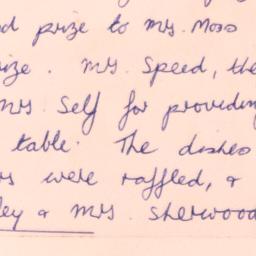 prize to Mrs. Moss
. Mrs. Speed, the
Mrs Self for providin
table. The dishes
were raffled, &
ley & Mrs. Sherwood